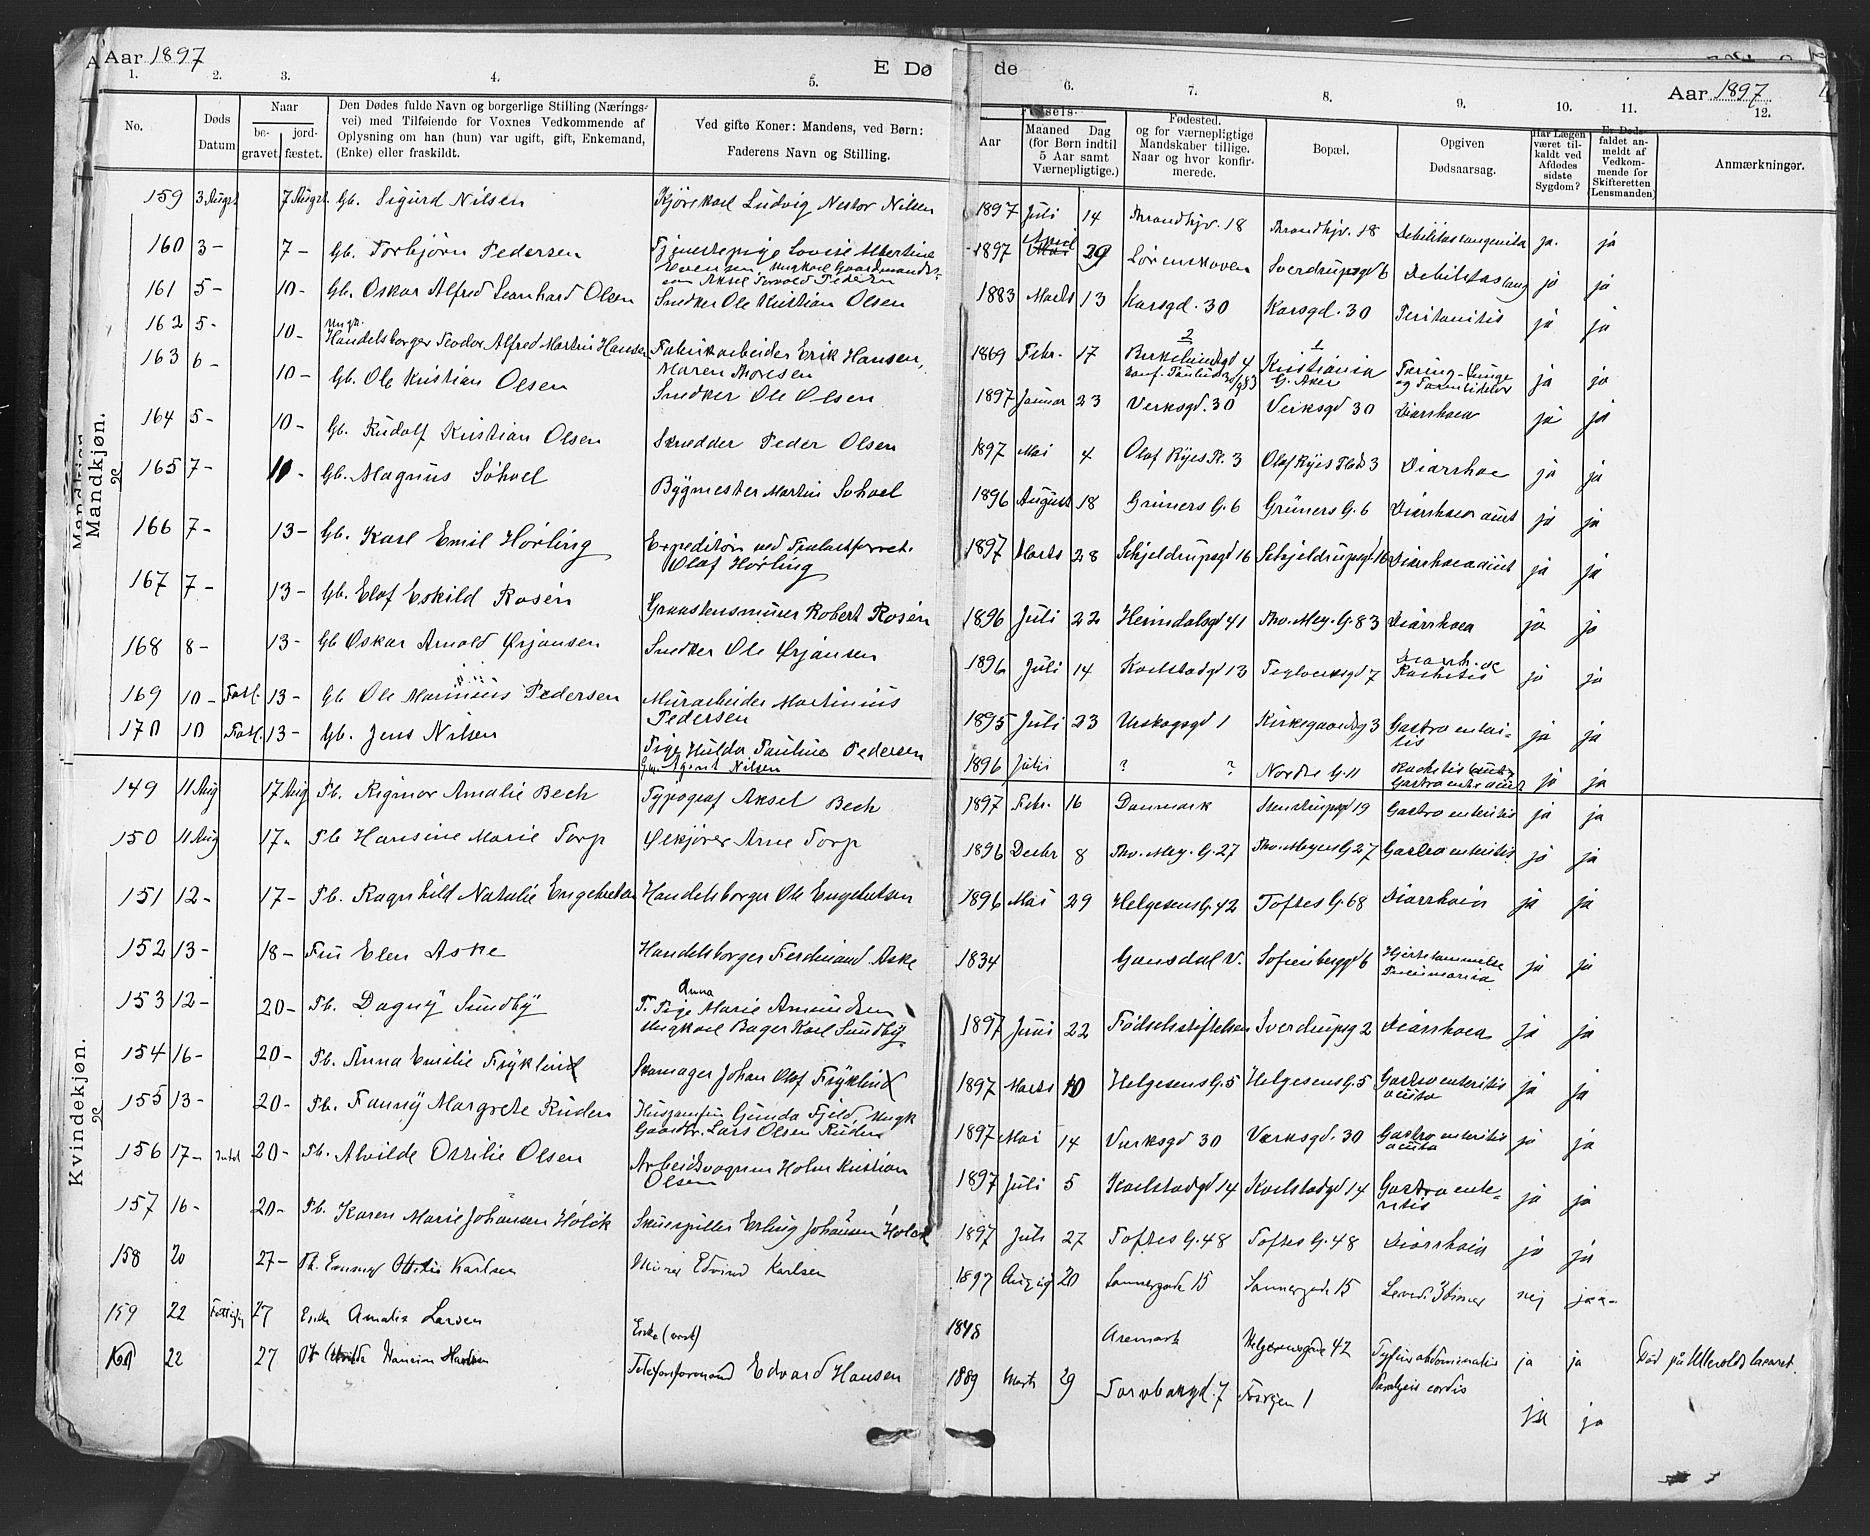 Aar 1897
E Dø de
Aar 1897
1. 2. 3. 4. 5. 6. 7. 8. 9. 10. 11. 12.
No.
Døds Datum
Naar
be-gravet.
jord-fæstet.
Den Dødes fulde Navn og borgerlige Stilling (Nærings-
vei) med Tilføiende for Voxnes Vedkommende af
Oplysning om han (hun) var ugift, gift, Enkemand,
(Enke) eller fraskildt.
Ved gifte Koner: Mandens, ved Børn:
Faderens Navn og Stilling.
Aar
Maaned (for Børn indtil 5 Aar samt Værnepligtige.)
Dag
Fødested. og for værnepligtige Mandskaber tillige. Naar og hvor konfir-merede.
Bopæl.
Opgiven Dødsaarsag.
Har Lægen været til-kaldt ved Afdødes sidste Sygdom?
Er Døds-faldet an-meldt af Vedkom-mende for Skifteretten (Lensmanden)
Anmærkninger.
Mandkjøn.
159 3 Augst 7 Augst. Gb. Sigurd Nilsen Kjørekarl Ludvig Nestor Nilsen 1897 Juli 14 Trondhjv. 18 Trondhjv. 18 Debilitas congenita ja. ja
160 3 - 7 - Gb. Torbjørn Pedersen Tjenestepige Lovise Martine
Evensen, Ungkarl Gaardmands-
søn Aksel Torvald Pedersen 1897 April 29 Lørenskoven Sverdrupsgd 6 Debilitas cong ja ja
161 5 - 10 - Gb. Oskar Alfred Leonhard Olsen Snedker Ole Kristian Olsen 1883 Marts 13 Korsgd. 30 Korsgd. 30 Peritonitis ja ja
162 5 - 10 - Ungk.
Handelsborger Teodor Alfred Martin Hansen Fabrikarbeider Erik Hansen,
Maren Thoresen 1869 Febr. 17 Birkelundsgd 4 Kristiania
G. Aker ja ja
163 6 - 10 - Gb. Ole Kristian Olsen Snedker Ole Olsen 1897 Januar 23 Verksgd. 30 Verksgd 30 Diarrhoea ja ja
164 5 - 10 - Gb. Rudolf Kristian Olsen Skredder Peder Olsen 1897 Mai 4 Olaf Ryes Pl. 3 Olaf Ryes Plads 3 Diarrhoe ja ja
165 7 - 10 - Gb. Magnus Sohoel Bygmester Martin Sohoel 1896 August 18 Grüners G. 6 Grüners G. 6 Diarrhoea acut ja ja
166 7 - 13 - Gb. Karl Emil Hørling Expeditør ved
Olaf Hørling 1897 Marts 28 Schjeldrupsgd 16 Schjeldrupsgd 16 Diarrhoea acut ja ja
167 7 - 13 - Gb. Elof Eskild Rosén Graastensmurer Robert Rosén 1896 Juli 22 Heimdalsgd 41 Thv. Mey. G. 83 Diarrhoea ja ja
168 8 - 13 - Gb Oskar Arnold Ørjansen Snedker Ole Ørjansen 1896 Juli 14 Karlstadgd 13 Teglverksgd 7 Diarrh. oc
Rachitis ja ja
169 10 - 13 - Gb Ole Marinius Pedersen Murarbeider Martinius
Pedersen 1895 Juli 23 Urskogsgd 1 Kirkegaardsg 3 Gastroenteri-
tis ja ja
170 10 13 - Gb. Jens Nilsen Pige Hulda Pauline Pedersen
Agent Nilsen 1896 Juli ? ? Nordre G. 11 Rachitis
Gastroent acut ja ja
Kvindekjøn.
149 11 Aug 17 Aug Pb. Rigmor Amalie Bech Typograf Aksel Bech 1897 Febr. 16 Danmark Stenstrupsgd 19 Gastroenteritis ja ja
150 11 Aug 17 - Pb Hansine Marie Torp Ølkjører Arne Torp 1896 Decbr 8 Thv. Mey. G. 27 Thv. Meyers G 27 Gastroenteritis ja ja
151 12 - 17 - Pb. Ragnhild Natalie Engebretsen Handelsborger Ole Engebretsen 1896 Mai 29 Helgesens G. 42 Toftes G. 68 Diarrhoea ja ja
152 13 - 18 - Fru Elen Aske Handelsborger Ferdinand Aske 1834 Gausdal V. Sofienbergd 6 Hjertelammelse
Pneumonia ja ja
153 12 - 20 - Pb. Dagny Sundby Anna
T. Pige Marie Amundsen
Ungkarl Bager Karl Sundby. 1897 Juni 22 Fødselsstiftelsen Sverdrupsg 2 Diarrhoea ja ja
154 16 - 20 - Pb. Anna Emilie Fryklind Skomager Johan Olof Fryklind 1897 Marts 10 Helgesens G. 5 Helgesens G. 5 Gastroenteritis
acuta ja ja
155 13 - 20 - Pb. Fanny Margrete Ruden Husjomfru Gunda Fjeld Ungk
Gaardbr. Lars Olsen Ruden 1897 Mai 14 Verksgd 30 Verksgd. 30 Gastroenteritis
acuta ja ja
156 17 - 20 - Pb. Alvilde Ossilie Olsen Arbeidsvogner Holm Kristian
Olsen 1897 Juli 5 Karlstadgd 14 Karlstadgd 14 Gastroente-
ritis ja ja
157 16 - 20 - Pb. Karen Marie Johansen Holck Skuespiller Erling Johansen Holck 1897 Juli 27 Toftes G. 48 Toftes G. 48 Diarrhoea ja ja
158 20 27 - Pb. Emmy Otilie Karlsen Murer Edvind Karlsen 1897 August 20 Sannergade 15 Sannergade 15 Levede 3 timer nej ja -
159 22 Fattig 27 Enke Amalie Larsen Enke 1848 Aremark Helgesensgade 42 Tyfus abdominalis ja ja Død på Ullevolds lasaret.
160 22 27 Pb Hansine Hansen Telefonformand Edvard Hansen 1889 Marts 29 Torvbakgd. 7 Fossvejen 1 Paralysis cordis ja ja